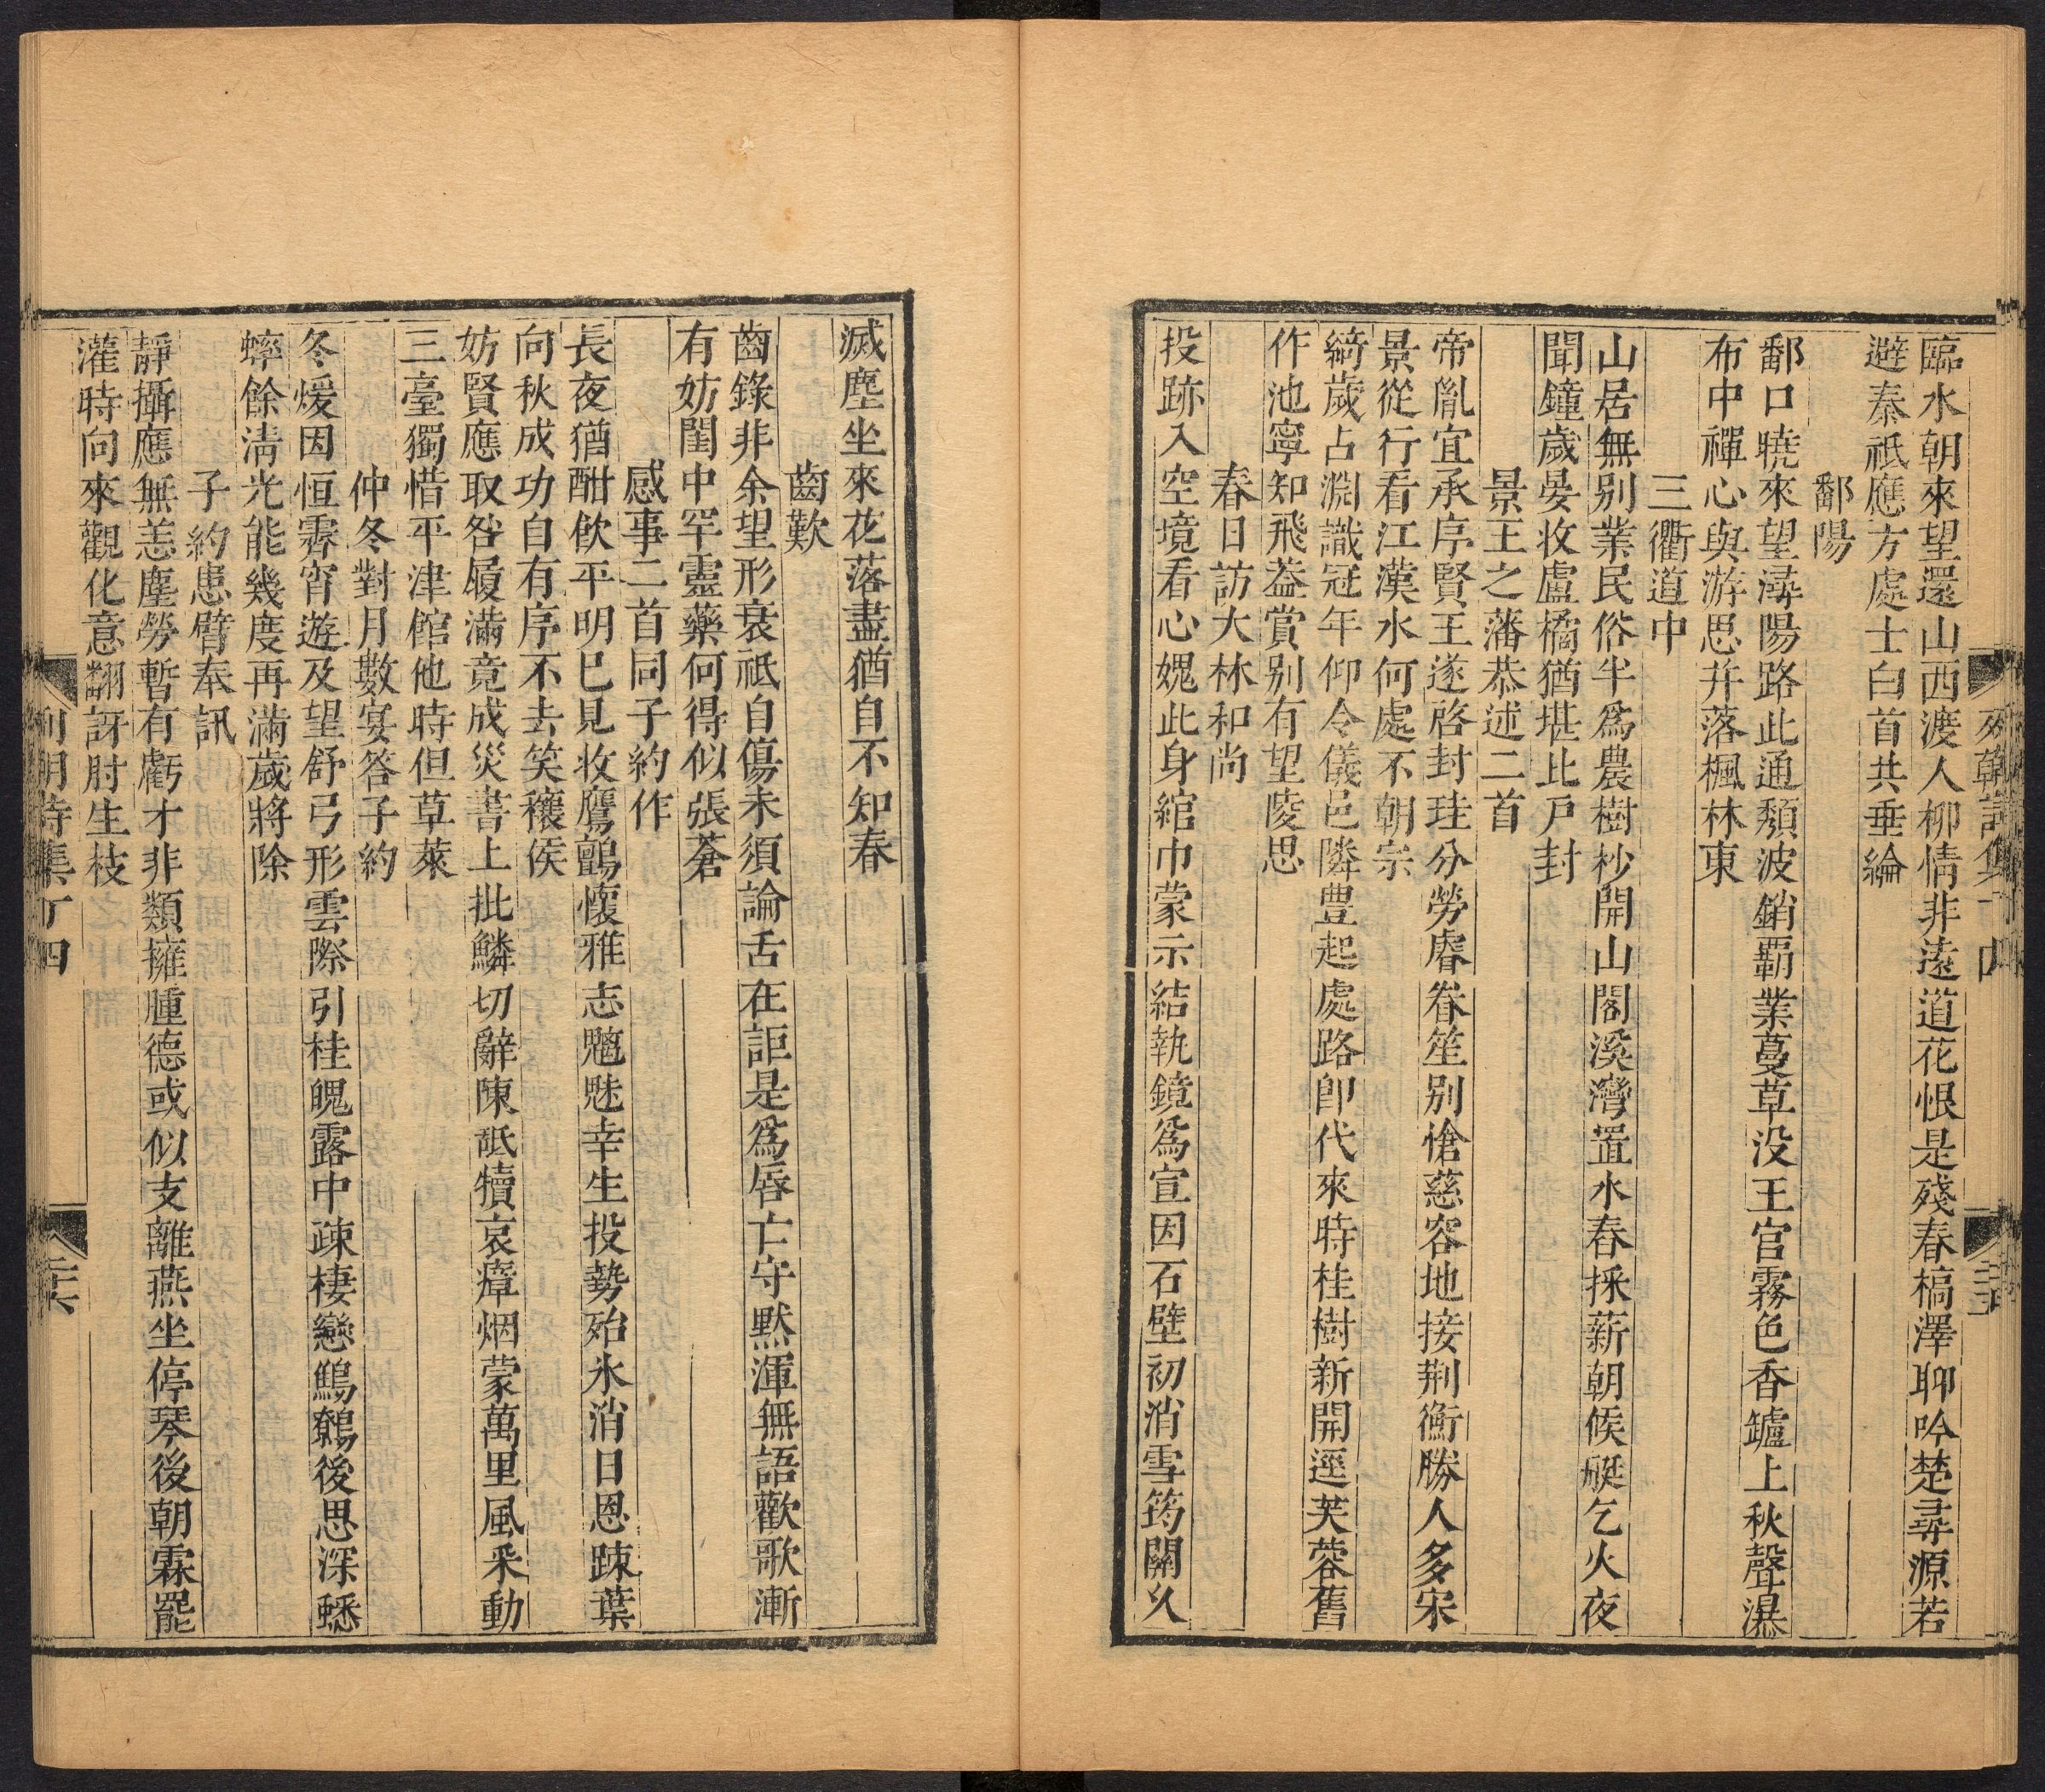 臨水朝來望還山西渡人柳情非遠道花恨是殘春槁澤聊吟楚尋源若
避秦祇應方處士白首共垂綸
鄱陽
鄱口曉來望潯陽路此通頽波銷覇業蔓草没王官霧色香鑪上秋聲瀑
布中禪心與游思并落楓林東
三衢道中
山居無别業民俗半爲農樹杪開山閣溪灣置水舂採薪朝候艇乞火夜
聞鐘歲晏收盧橘猶堪比戸封
景王之藩恭述二首
帝胤宜承序賢王遂啓封珪分勞睿眷笙别愴慈容地接荆衡勝人多宋
景從行看江漢水何處不朝宗
綺歲占淵識冠年仰令儀邑隣豊起處路卽代來時桂樹新開逕芙蓉舊
作池寧知飛葢賞别有望陵思
春日訪大林和尚
投跡入空境看心媿此身綰巾蒙示結執鏡爲宣因石壁初消雪筠關乆
滅塵坐來花落盡猶自不知春
齒歎
齒錄非余望形衰祇自傷未須論舌在詎是爲唇亡守黙渾無語歡歌漸
有妨閨中罕靈藥何得似張蒼
感事二首同子約作
長夜猶酣飲平明巳見收鷹鸇懷雅志魑魅幸生投勢殆氷消日恩踈葉
向秋成功自有序不去笑穰侯
妨賢應取咎履滿竟成災書上批鱗切辭陳舐犢哀瘴烟蒙萬里風采動
三臺獨惜平津館他時但草萊
仲冬對月數宴答子約
冬煖因恒霽宵遊及望舒弓形雲際引桂魄露中疎棲戀鷦鷯後思深蟋
蟀餘淸光能幾度再滿歲將除
子約患臂奉訊
靜攝應無恙塵勞暫有虧才非類擁腫德或似支離燕坐停琴後朝霖罷
灌時向來觀化意翻訝肘生枝